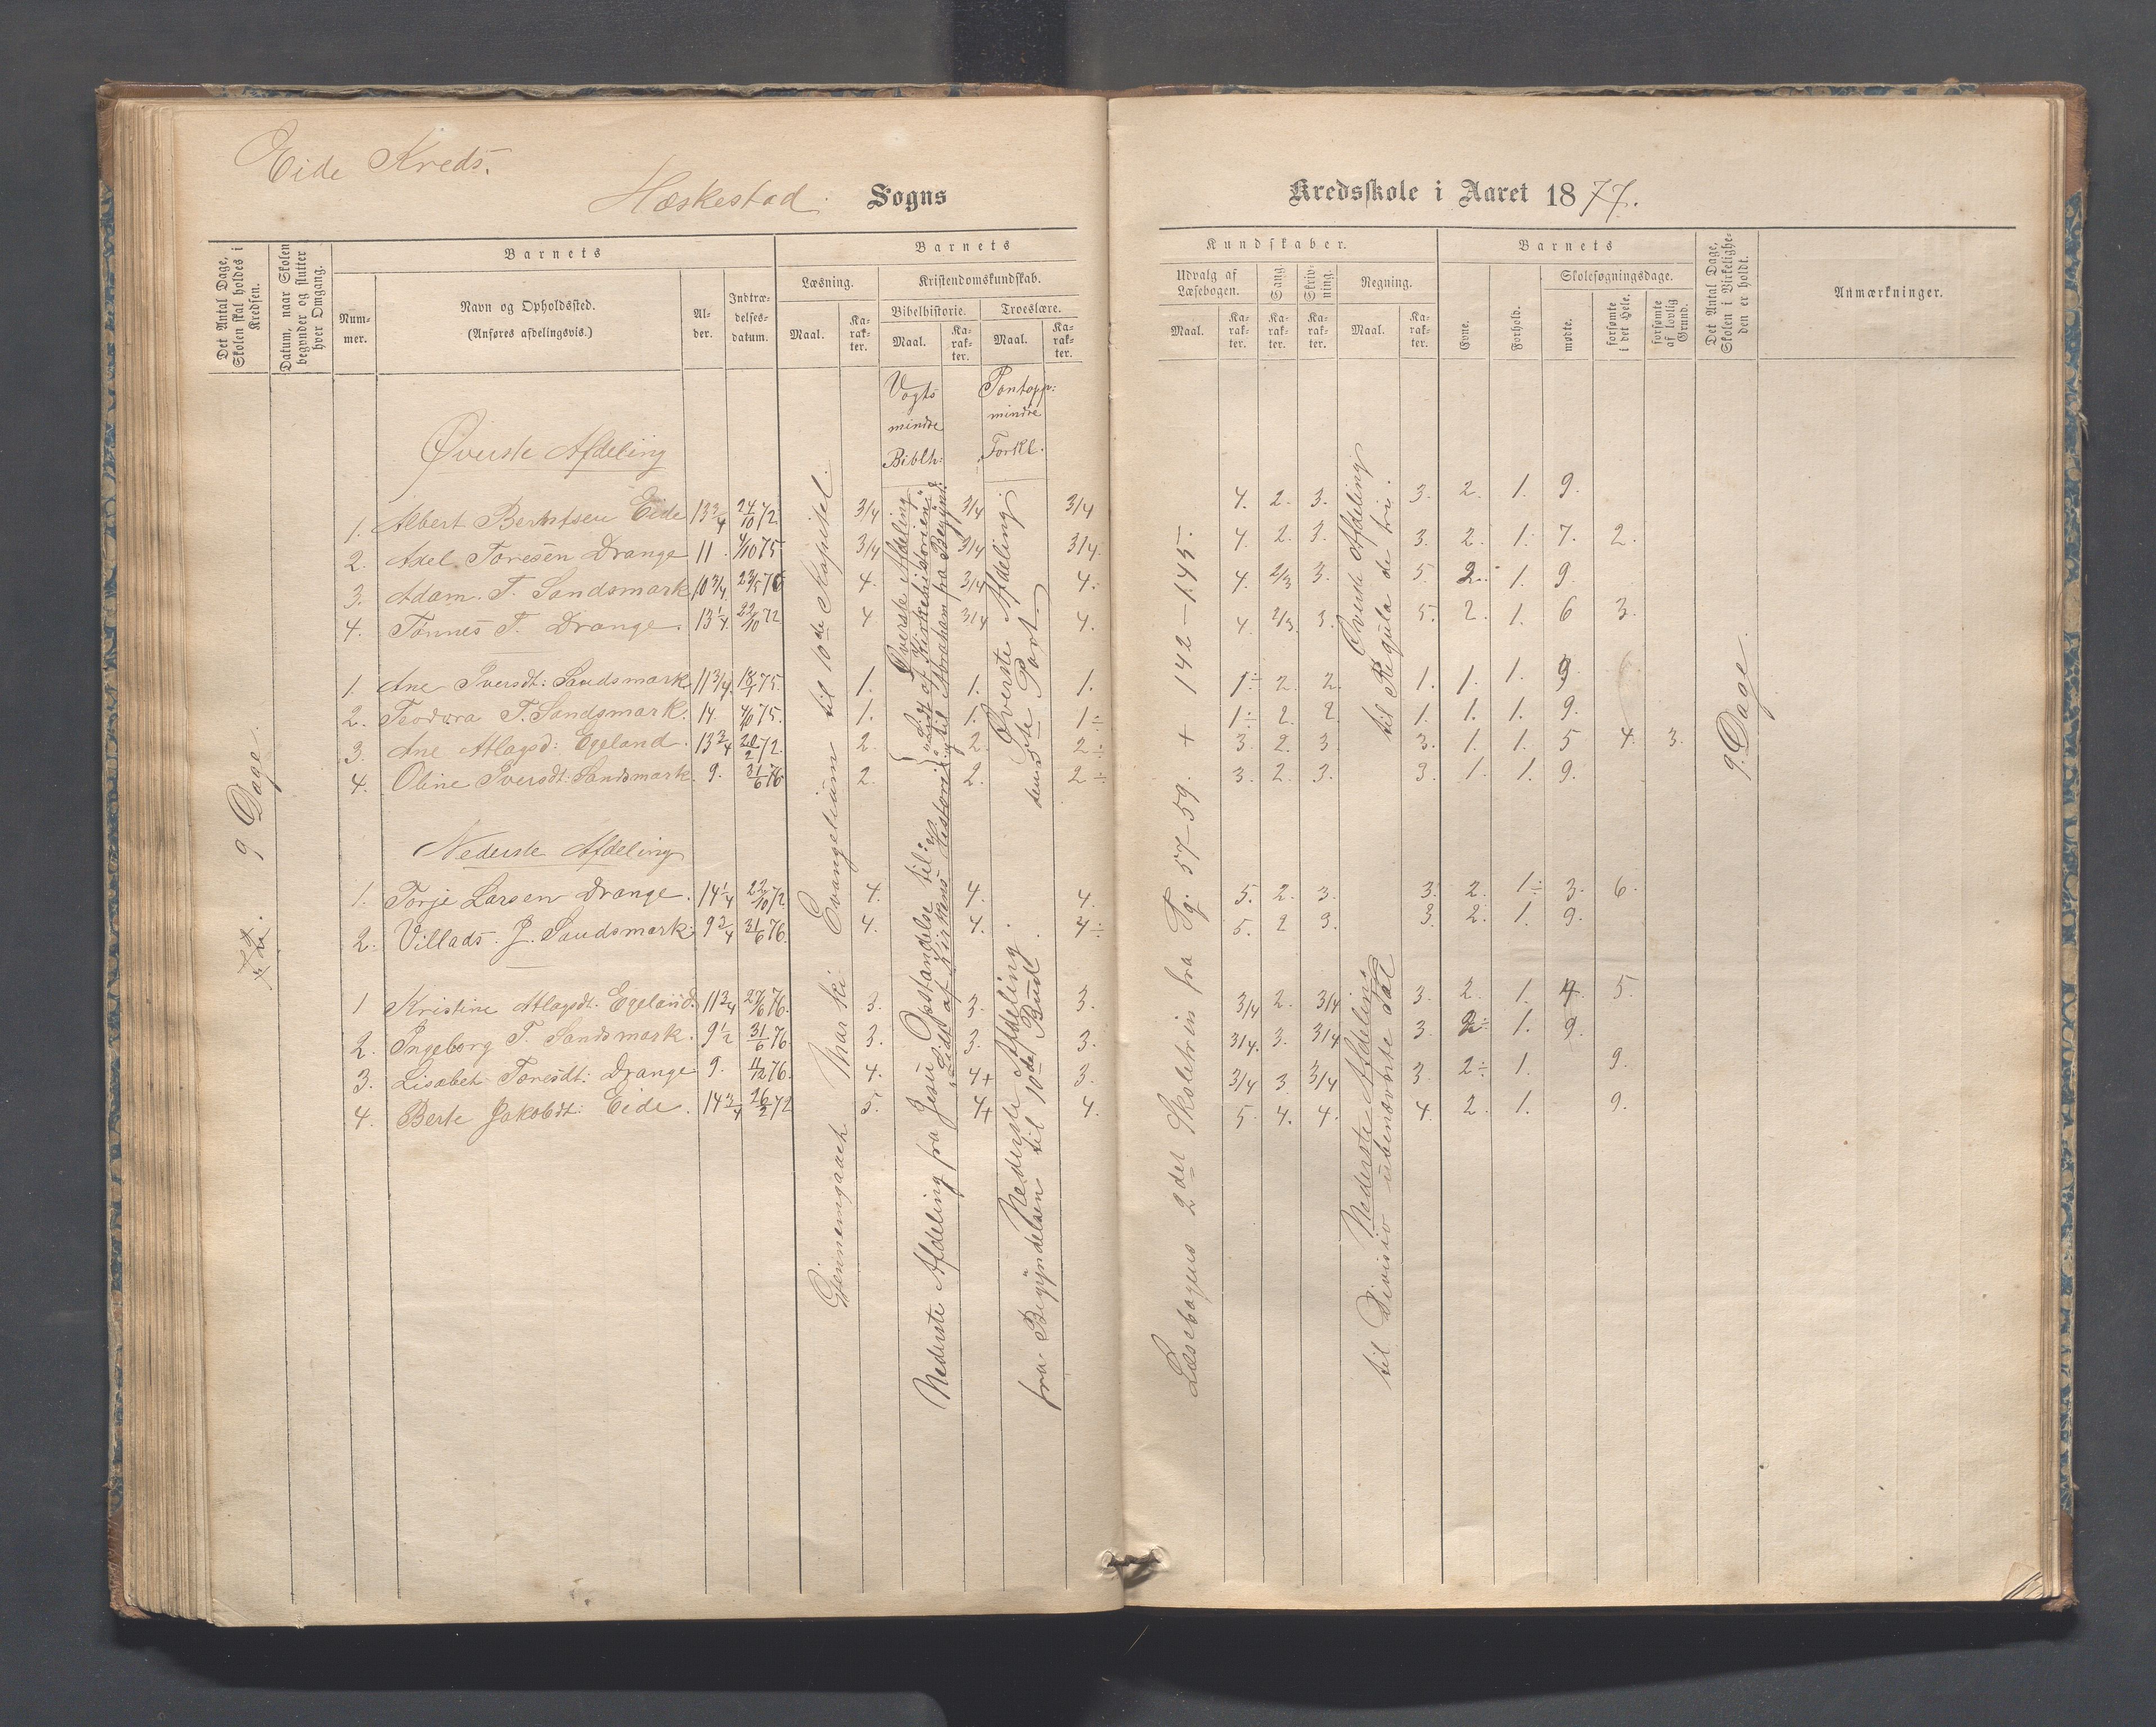 Eide Kreds.
Hæskestad Sogns
Kredsskole i Aaret 1877.
Det Antal Dage, Skolen skal holdes i Kredsen.
Datum, naar Skolen begynder og slutter hver Omgang.
Barnets
Nummer.
Navn og Opholdssted.
(Anføres afdelingsvis.)
Alder.
Indtrædelsesdatum.
Barnets
Læsning.
Maal.
Karakter.
Kristendomskundskab.
Bibelhistorie.
Maal.
Karakter.
Troeslære.
Maal.
Karakter.
Kundskaber.
Udvalg af Læsebogen.
Maal.
Karakter.
Sang.
Karakter.
Skrivning.
Karakter.
Regning.
Maal.
Karakter.
Barnets
Evne.
Forhold.
Skolesøgningsdage.
mødte.
forsømte i det Hele.
forsømte af lovlig Grund.
Det Antal Dage, Skolen i Virkeligheden er holdt.
Anmærkninger.
Vogts mindre Biblh:
Pontopp: mindre Forkl.
Øverste Afdeling
1. Albert Berntsen Eide 13 3/4 24/10 72 3/4 3/4 3/4 4. 2. 3. 3. 2. 1. 9.
2. Adel Toresen Drange 11. 4/10 75 3/4 3/4 3/4. 4. 2. 3. 3. 2. 1. 7. 2.
3. Adam. T. Sandsmark 10 3/4 4. 3/4 4. 4. 2/3 3. 5. 2. 1. 9.
4. Tønnes T. Drange. 13 1/4 22/10 72 4 3/4 4. 4. 2/3. 3. 5. 2. 1. 6 3.
1. Ane Iversdt: Sandsmark 11 3/4. 75. 1. 1. 1. 1÷ 2. 2. 1. 1. 1. 9.
2. Teodora T. Sandsmark. 14. 4/10 75. 1. 1. 1÷ 1÷ 2. 2. 1. 1. 1. 9.
3. Ane Atlagsd: Egeland. 13 3/4 72. 2. 2. 2÷ 3. 2. 3. 3. 1. 1. 5 4. 3.
4. Oline Iversdt: Sandsmark. 9. 31/6 76 2. 2. 2÷ 3. 2. 3. 3. 1. 1. 9.
Nederste Afdeling
1. Torje Larsen Drange. 14 1/4 22/10 72 4. 4. 4. 5. 2. 3. 3. 2. 1÷ 3. 6.
2. Villads. J. Sandsmark. 9 3/4 31/6 76. 4. 4. 4÷ 5. 2 3. 3. 2. 1. 9.
1 Kristine Atlagsdt. Egeland. 11 3/4 27/6 76. 3. 3. 3. 3/4 2. 3/4 3. 2. 1. 4. 5.
2. Ingeborg T. Sandsmark. 9 1/2 31/6 76 3. 3. 3. 3/4. 3. 3/4 3. 2÷ 1. 9.
3. Lisabet Toresdt: Drange 9. 76. 4. 4+ 3. 3/4 3 3/4 3. 2÷ 1. 9.
4. Berte Jakobdt: Eide. 14 3/4 26/2 72 5. 4+ 4. 5 4. 4. 4. 2. 1. 9.
9 Dage.
Gjennemgaaet Marki Evangelium til 10de Kapitel.
Øverste Afdeling
Nederste Afdeling fra Jesu Opstandelse til:
Øverste Afdeling den 5te Part
Nederste Afdeling. fra Begyndelsen til 10de Bud.
Læsebogens 2det Skoletrin fra Pg. 57–59. + 142–145.
Øverste Afdeling til Regula de tri.
Nederste Afdeling til Division ubenævnte Tal
9. Dage.